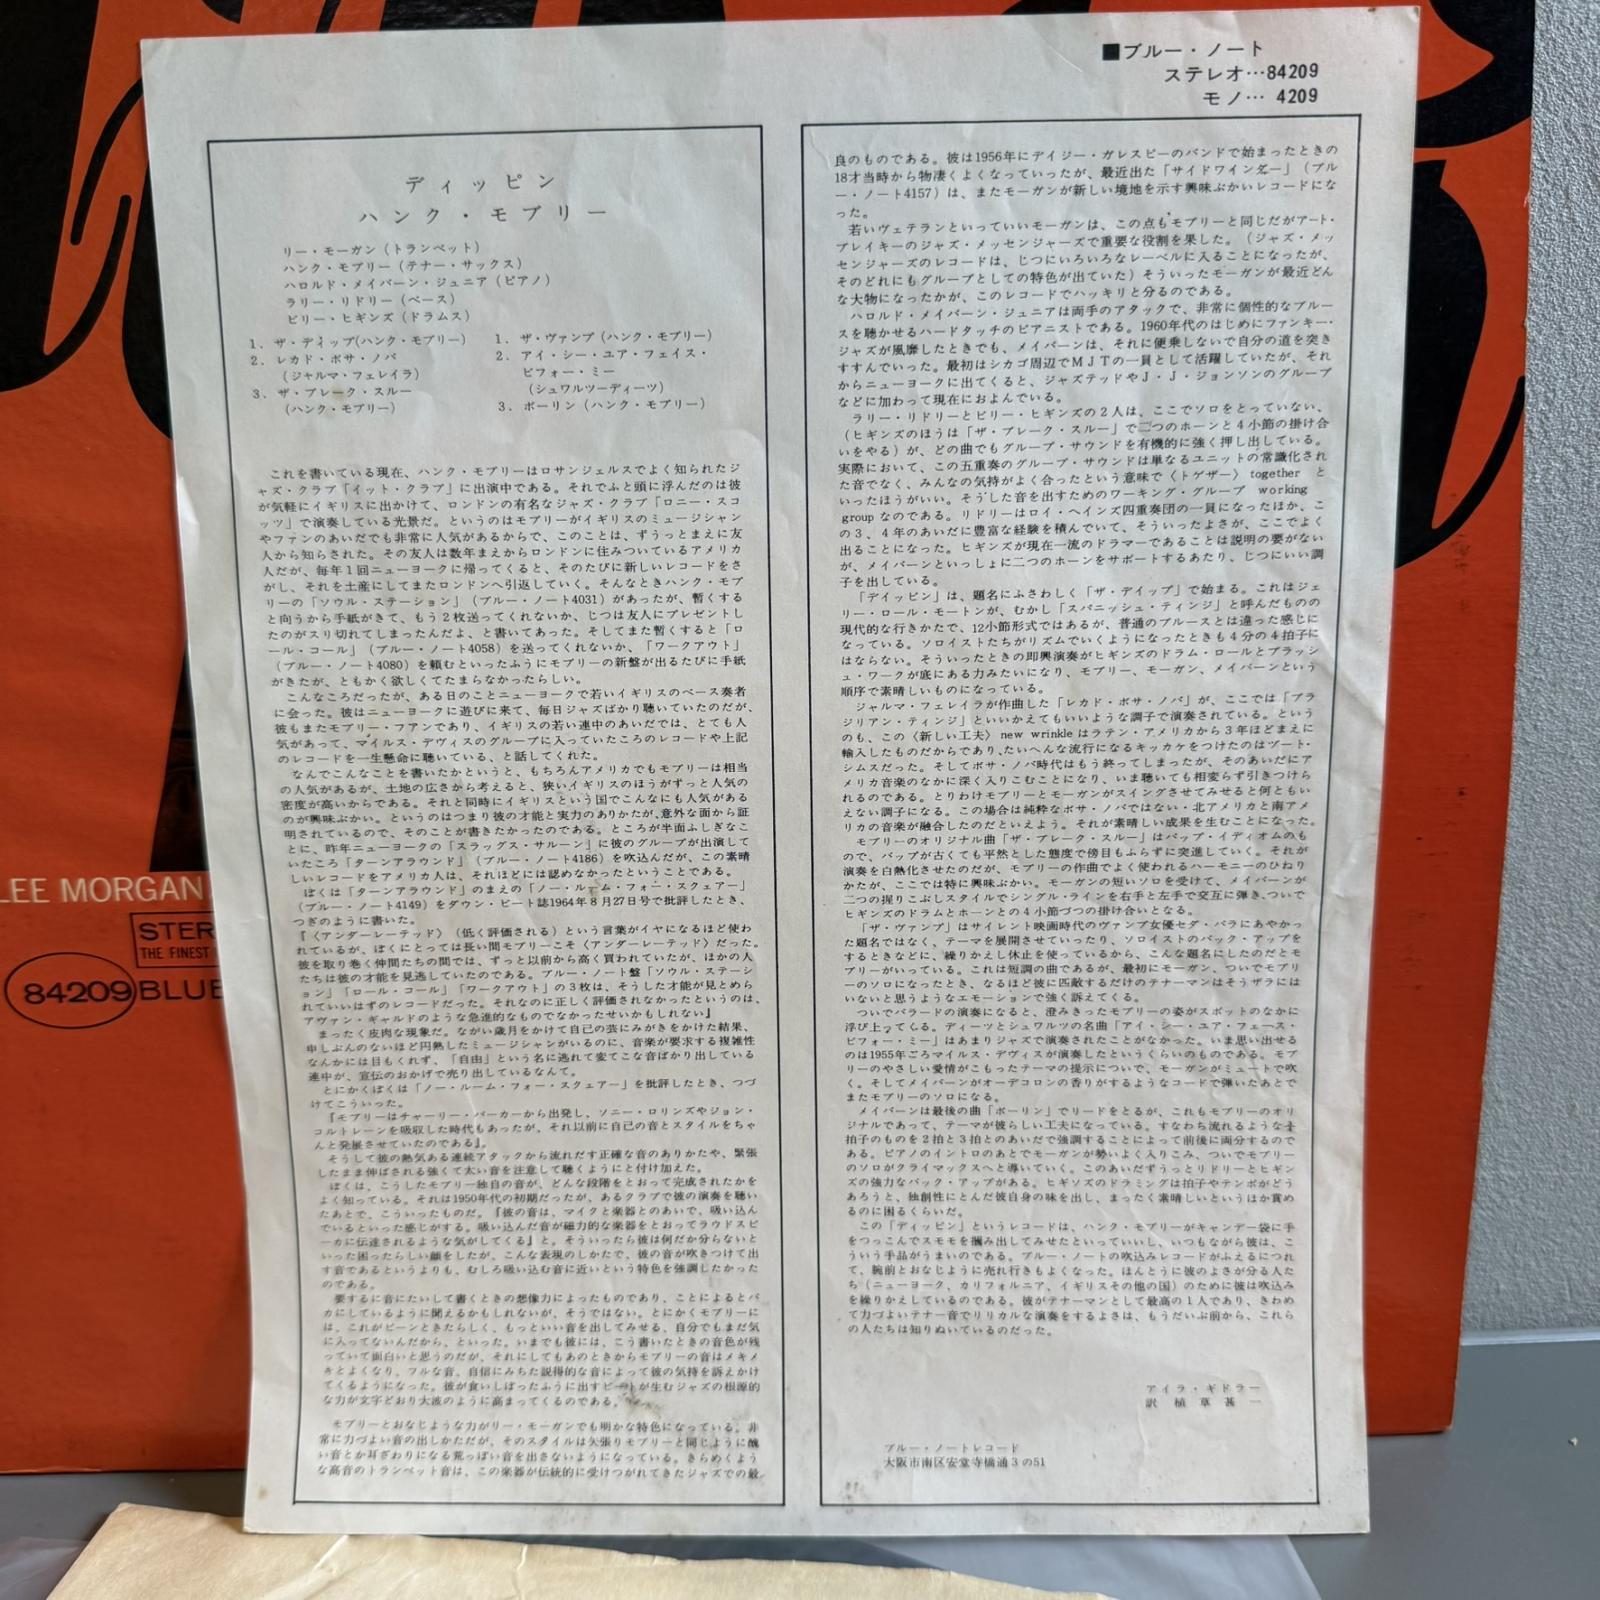 ■ブルー・ノート
ステレオ…84209
モノ… 4209
ディッピン
ハンク・モブリー
リー・モーガン(トランペット)
ハンク・モブリー(テナー・サックス)
ハロルド・メイバーン・ジュニア(ピアノ)
ラリー・リドリー(ベース)
ビリー・ヒギンズ(ドラムス)
1. ザ・ディップ(ハンク・モブリー)
2. レカド・ボサ・ノバ
(ジャルマ・フェレイラ)
3. ザ・ブレーク・スルー
(ハンク・モブリー)
1. ザ・ヴァンプ(ハンク・モブリー)
2. アイ・シー・ユア・フェイス・
ビフォー・ミー
(シュワルツーディーツ)
3. ボーリン(ハンク・モブリー)
これを書いている現在、ハンク・モブリーはロサンジェルスでよく知られたジ
ャズ・クラブ「イット・クラブ」に出演中である。それでふと頭に浮んだのは彼
が気軽にイギリスに出かけて、ロンドンの有名なジャズ・クラブ「ロニー・スコ
ッツ」で演奏している光景だ。というのはモブリーがイギリスのミュージシャン
やファンのあいだでも非常に人気があるからで、このことは、ずうっとまえに友
人から知らされた。その友人は数年まえからロンドンに住みついているアメリカ
人だが、毎年1回ニューヨークに帰ってくると、そのたびに新しいレコードをさ
がし、それを土産にしてまたロンドンへ引返していく。そんなときハンク・モブ
リーの「ソウル・ステーション」(ブルー・ノート4031)があったが、暫くする
と向うから手紙がきて、もう2枚送ってくれないか、じつは友人にプレゼントし
たのがスリ切れてしまったんだよ、と書いてあった。そしてまた暫くすると「ロ
ール・コール」(ブルー・ノート4058)を送ってくれないか、「ワークアウト」
(ブルー・ノート4080)を頼むといったふうにモブリーの新盤が出るたびに手紙
がきたが、ともかく欲しくてたまらなかったらしい。
こんなころだったが、ある日のことニューヨークで若いイギリスのベース奏者
に会った。彼はニューヨークに遊びに来て、毎日ジャズばかり聴いていたのだが、
彼もまたモブリー・フアンであり、イギリスの若い連中のあいだでは、とても人
気があって、マイルス・デヴィスのグループに入っていたころのレコードや上記
のレコードを一生懸命に聴いている、と話してくれた。
なんでこんなことを書いたかというと、もちろんアメリカでもモブリーは相当
の人気があるが、土地の広さから考えると、狭いイギリスのほうがずっと人気の
密度が高いからである。それと同時にイギリスという国でこんなにも人気がある
のが興味ぶかい。というのはつまり彼の才能と実力のありかたが、意外な面から証
明されているので、そのことが書きたかったのである。ところが半面ふしぎなこ
とに、昨年ニューヨークの「スラッグス・サルーン」に彼のグループが出演して
いたころ「ターンアラウンド」(ブルー・ノート4186)を吹込んだが、この素晴
しいレコードをアメリカ人は、それほどには認めなかったということである。
ぼくは「ターンアラウンド」のまえの「ノー・ルーム・フォー・スクェアー」
(ブルー・ノート4149)をダウン・ビート誌1964年8月27日号で批評したとき、
つぎのように書いた。
『〈アンダーレーテッド〉(低く評価される)という言葉がイヤになるほど使わ
れているが、ぼくにとっては長い間モブリーこそ〈アンダーレーテッド〉だった。
彼を取り巻く仲間たちの間では、ずっと以前から高く買われていたが、ほかの人
たちは彼の才能を見逃していたのである。ブルー・ノート盤「ソウル・ステーシ
ョン」「ロール・コール」「ワークアウト」の3枚は、そうした才能が見とめら
れていいはずのレコードだった。それなのに正しく評価されなかったというのは、
アヴァン・ギャルドのような急進的なものでなかったせいかもしれない』
まったく皮肉な現象だ。ながい歳月をかけて自己の芸にみがきをかけた結果、
申しぶんのないほど円熟したミュージシャンがいるのに、音楽が要求する複雑性
なんかには目もくれず、「自由」という名に逃れて変てこな音ばかり出している
連中が、宣伝のおかげで売り出しているなんて。
とにかくぼくは「ノー・ルーム・フォー・スクェアー」を批評したとき、つづ
けてこういった。
『モブリーはチャーリー・パーカーから出発し、ソニー・ロリンズやジョン・
コルトレーンを吸収した時代もあったが、それ以前に自己の音とスタイルをちゃ
んと発展させていたのである』。
そうして彼の熱気ある連続アタックから流れだす正確な音のありかたや、緊張
したまま伸ばされる強くて太い音を注意して聴くようにと付け加えた。
ぼくは、こうしたモブリー独自の音が、どんな段階をとおって完成されたかを
よく知っている。それは1950年代の初期だったが、あるクラブで彼の演奏を聴い
たあとで、こういったものだ。『彼の音は、マイクと楽器とのあいで、吸い込ん
でいるといった感じがする。吸い込んだ音が磁力的な楽器をとおってラウドスピ
ーカに伝達されるような気がしてくる』と。そういったら彼は何だか分らないと
いった困ったらしい顔をしたが、こんな表現のしかたで、彼の音が吹きつけて出
す音であるというよりも、むしろ吸い込む音に近いという特色を強調したかった
のである。
要するに音にたいして書くときの想像力によったものであり、ことによるとバ
カにしているように聞えるかもしれないが、そうではない。とにかくモブリーに
は、これがピーンときたらしく、もっといい音を出してみせる、自分でもまだ気
に入ってないんだから、といった。いまでも彼には、こう書いたときの音色が残
っていて面白いと思うのだが、それにしてもあのときからモブリーの音はメキメ
キとよくなり、フルな音、自信にみちた説得的な音によって彼の気持を訴えかけ
てくるようになった。彼が食いしばったふうに出すビートが生むジャズの根源的
な力が文字どおり大波のように高まってくるのである。
モブリーとおなじような力がリー・モーガンでも明かな特色になっている。非
常に力づよい音の出しかただが、そのスタイルは矢張りモブリーと同じように醜
い音とか耳ざわりになる荒っぽい音を出さないようになっている。きらめくよう
な高音のトランペット音は、この楽器が伝統的に受けつがれてきたジャズでの最
良のものである。彼は1956年にデイジー・ガレスピーのバンドで始まったときの
18才当時から物凄くよくなっていったが、最近出た「サイドワインダー」(ブル
ー・ノート4157)は、またモーガンが新しい境地を示す興味ぶかいレコードにな
った。
若いヴェテランといっていいモーガンは、この点もモブリーと同じだがアート・
ブレイキーのジャズ・メッセンジャーズで重要な役割を果した。(ジャズ・メッ
センジャーズのレコードは、じつにいろいろなレーベルに入ることになったが、
そのどれにもグループとしての特色が出ていた)そういったモーガンが最近どん
な大物になったかが、このレコードでハッキリと分るのである。
ハロルド・メイバーン・ジュニアは両手のアタックで、非常に個性的なブルー
スを聴かせるハードタッチのピアニストである。1960年代のはじめにファンキー・
ジャズが風靡したときでも、メイバーンは、それに便乗しないで自分の道を突き
すすんでいった。最初はシカゴ周辺でMJTの一員として活躍していたが、それ
からニューヨークに出てくると、ジャズテッドやJ・J・ジョンソンのグループ
などに加わって現在におよんでいる。
ラリー・リドリーとビリー・ヒギンズの2人は、ここでソロをとっていない、
(ヒギンズのほうは「ザ・ブレーク・スルー」で二つのホーンと4小節の掛け合
いをやる)が、どの曲でもグループ・サウンドを有機的に強く押し出している。
実際において、この五重奏のグループ・サウンドは単なるユニットの常識化され
た音でなく、みんなの気持がよく合ったという意味で〈トゲザー〉together と
いったほうがいい。そうした音を出すためのワーキング・グループ working
group なのである。リドリーはロイ・ヘインズ四重奏団の一員になったほか、こ
の3、4年のあいだに豊富な経験を積んでいて、そういったよさが、ここでよく
出ることになった。ヒギンズが現在一流のドラマーであることは説明の要がない
が、メイバーンといっしょに二つのホーンをサポートするあたり、じつにいい調
子を出している。
「デイッピン」は、題名にふさわしく「ザ・デイップ」で始まる。これはジェ
リー・ロール・モートンが、むかし「スパニッシュ・ティンジ」と呼んだものの
現代的な行きかたで、12小節形式ではあるが、普通のブルースとは違った感じに
なっている。ソロイストたちがリズムでいくようになったときも4分の4拍子に
はならない。そういったときの即興演奏がヒギンズのドラム・ロールとブラッシ
ュ・ワークが底にある力みたいになり、モブリー、モーガン、メイバーンという
順序で素晴しいものになっている。
ジャルマ・フェレイラが作曲した「レカド・ボサ・ノバ」が、ここでは「ブラ
ジリアン・ティンジ」といいかえてもいいような調子で演奏されている。という
のも、この〈新しい工夫〉new wrinkle はラテン・アメリカから3年ほどまえに
輸入したものだからであり、たいへんな流行になるキッカケをつけたのはヅート・
シムスだった。そしてボサ・ノバ時代はもう終ってしまったが、そのあいだにア
メリカ音楽のなかに深く入りこむことになり、いま聴いても相変らず引きつけら
れるのである。とりわけモブリーとモーガンがスイングさせてみせると何ともい
えない調子になる。この場合は純粋なボサ・ノバではない・北アメリカと南アメ
リカの音楽が融合したのだといえよう。それが素晴しい成果を生むことになった。
モブリーのオリジナル曲「ザ・ブレーク・スルー」はバップ・イディオムのも
ので、バップが古くても平然とした態度で傍目もふらずに突進していく。それが
演奏を白熱化させたのだが、モブリーの作曲でよく使われるハーモニーのひねり
かたが、ここでは特に興味ぶかい。モーガンの短いソロを受けて、メイバーンが
二つの握りこぶしスタイルでシングル・ラインを右手と左手で交互に弾き、ついで
ヒギンズのドラムとホーンとの4小節づつの掛け合いとなる。
「ザ・ヴァンプ」はサイレント映画時代のヴァンプ女優セダ・バラにあやかっ
た題名ではなく、テーマを展開させていったり、ソロイストのバック・アップを
するときなどに、繰りかえし休止を使っているから、こんな題名にしたのだとモ
ブリーがいっている。これは短調の曲であるが、最初にモーガン、ついでモブリ
ーのソロになったとき、なるほど彼に匹敵するだけのテナーマンはそうザラには
いないと思うようなエモーションで強く訴えてくる。
ついでバラードの演奏になると、澄みきったモブリーの姿がスポットのなかに
浮び上ってくる。ディーツとシュワルツの名曲「アイ・シー・ユア・フェース・
ビフォー・ミー」はあまりジャズで演奏されたことがなかった。いま思い出せる
のは1955年ごろマイルス・デヴィスが演奏したというくらいのものである。モブ
リーのやさしい愛情がこもったテーマの提示について、モーガンがミュートで吹
く。そしてメイバーンがオーデコロンの香りがするようなコードで弾いたあとで
またモブリーのソロになる。
メイバーンは最後の曲「ボーリン」でリードをとるが、これもモブリーのオリ
ジナルであって、テーマが彼らしい工夫になっている。すなわち流れるような
拍子のものを2拍と3拍とのあいだで強調することによって前後に両分するので
ある。ピアノのイントロのあとでモーガンが勢いよく入りこみ、ついでモブリー
のソロがクライマックスへと導いていく。このあいだずうっとリドリーとヒギン
ズの強力なバック・アップがある。ヒギンズのドラミングは拍子やテンポがどう
あろうと、独創性にとんだ彼自身の味を出し、まったく素晴しいというほか賞め
るのに困るくらいだ。
この「ディッピン」というレコードは、ハンク・モブリーがキャンデー袋に手
をつっこんでスモモを摑み出してみせたといっていいし、いつもながら彼は、こ
ういう手品がうまいのである。ブルー・ノートの吹込みレコードがふえるにつれ
て、腕前とおなじように売れ行きもよくなった。ほんとうに彼のよさが分る人た
ち(ニューヨーク、カリフォルニア、イギリスその他の国)のために彼は吹込み
を繰りかえしているのである。彼がテナーマンとして最高の1人であり、きわめ
て力づよいテナー音でリリカルな演奏をするよさは、もうだいぶ前から、これら
の人たちは知りぬいているのだった。
アイラ・ギドラー
訳 植草甚一
ブルー・ノートレコード
大阪市南区安堂寺橋通3の51
LEE MORGAN
STER
THE FINEST
84209 BLUE